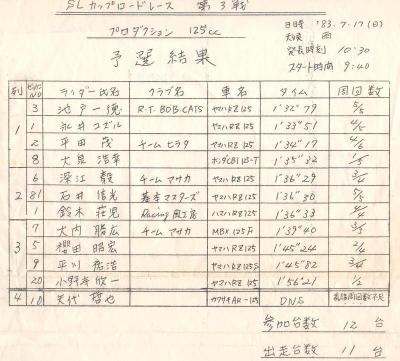 SLカップロードレース 第3戦
プロダクション 125cc
予選結果
日時 '83.7.17(日)
天候 雨
発表時刻 10:30
スタート時間 9:40
列 ゼッケンNO ライダー氏名 クラブ名 車名 タイム 周回数
1 3 池戸一徳 R.T.BOB-CATS ヤマハRZ125 1'32"79 5/5
1 永井コズル ヤマハRZ125 1'33"51 4/5
2 平田 茂 チームヒラタ ヤマハRZ125 1'34"17 4/5
8 大良浩幸 ホンダCB125-T 1'35"32 1/5
2 6 深江 毅 チームアサカ ヤマハRZ125 1'36"29 3/4
81 石井信光 マスターズ ヤマハRZ125 1'36"30 5/5
1 鈴木荘児 Racing風工房 ヤマハRZ125 1'36"33 4/4
3 7 大内勝広 チームアサカ MBX125F 1'39"40 3/5
5 櫻田昭宏 ヤマハRZ125 1'45"24 2/4
9 平川 浩 ヤマハRZ125 1'45"82 3/4
20 小野寺欣一 ヤマハRZ125 1'56"21 1/2
4 10 矢代哲也 カワサキAR-125 DNS 最低周回数不足
参加台数 12 台
出走台数 11 台